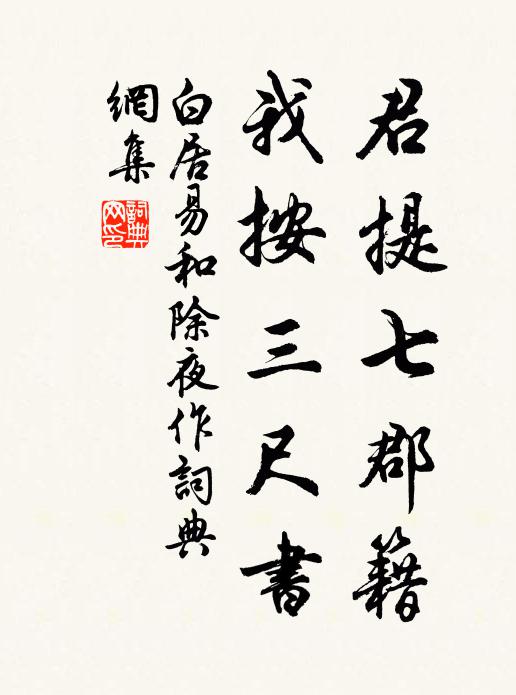 君提七郡籍
我按三尺書
白居易和除夜作詞典
網集
詞典網印